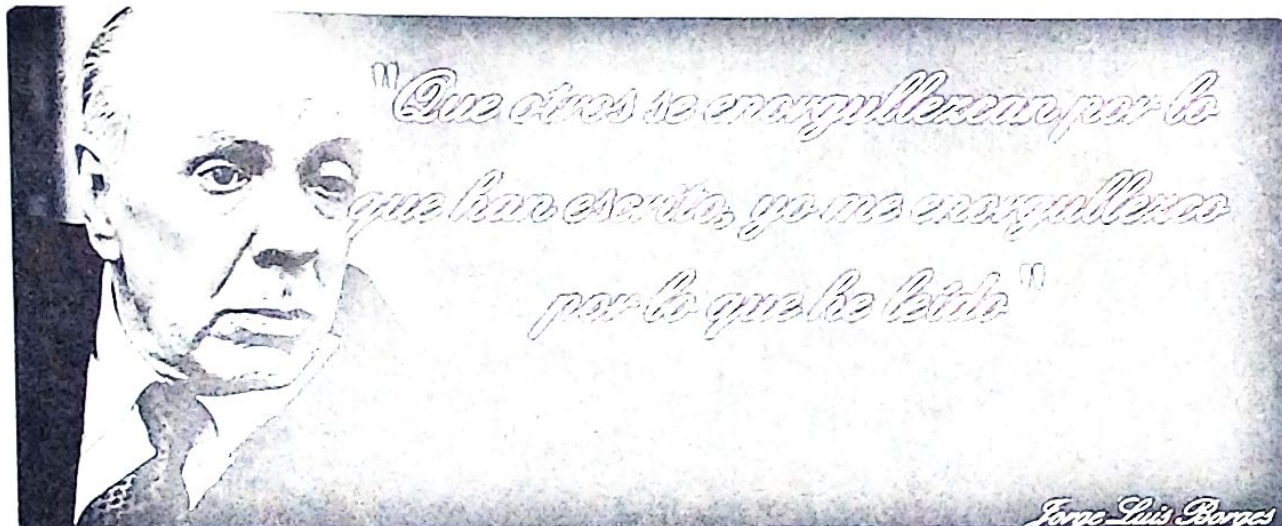 "Que otros se enorgullezcan por lo
que han escrito, yo me enorgullezco
por lo que he leído"
Jorge Luis Borges